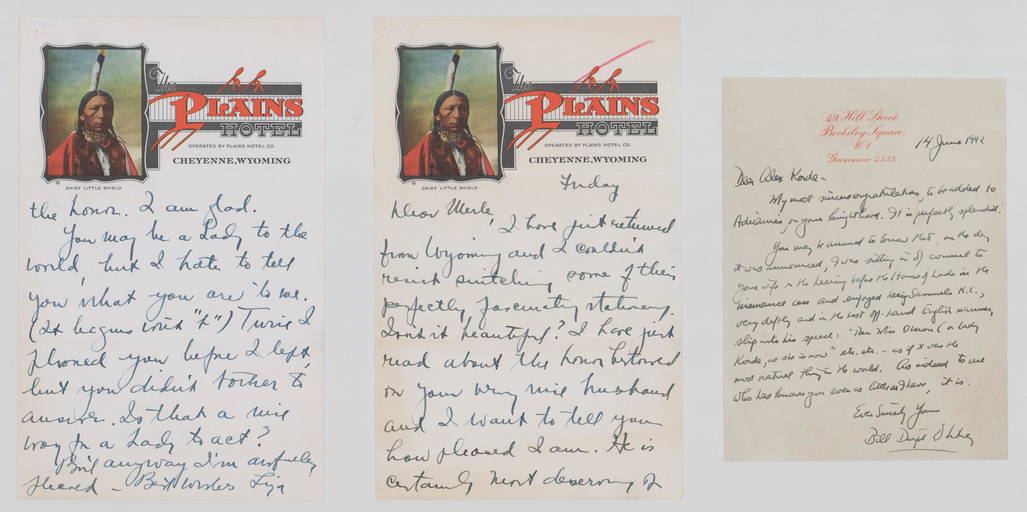 The
PLAINS
HOTEL
OPERATED BY PLAINS HOTEL CO.
CHEYENNE, WYOMING
© CHIEF LITTLE SHIELD
the honor. I am glad.
You may be a Lady to the
world, but I hate to tell
you what you are to me.
(It begins with "t") Twice I
phoned you before I left,
but you didn't bother to
answer. Is that a nice
way for a Lady to act?
But anyway I'm awfully
pleased – Best wishes Liza
The
PLAINS
HOTEL
OPERATED BY PLAINS HOTEL CO.
CHEYENNE, WYOMING
© CHIEF LITTLE SHIELD
Friday
Dear Merle,
I have just returned
from Wyoming and I couldn't
resist snitching some of their
perfectly fascinating stationery.
Isn't it beautiful? I have just
read about the honor bestowed
on your very nice husband
and I want to tell you
how pleased I am. He is
certainly most deserving of
49, Hill Street,
Berkeley Square,
W.1
Grosvenor 2253
14 June 1942
Dear Alex Korda –
My most sincere congratulations, to be added to
Adrianne's, on your knighthood. It is perfectly splendid.
You may be amused to know that, on the day
it was announced, I was sitting in of counsel to
your wife in the hearing before the House of Lords in the
insurance case and enjoyed hearing Samuels K.C.,
very deftly and in the best off-hand English manner,
slip into his speech: "Then Miss Oberon (or Lady
Korda, as she is now" etc. etc. – as if it was the
most natural thing in the world. As indeed to one
who has known you even as little as I have, it is.
Ever Sincerely Yours
Bill